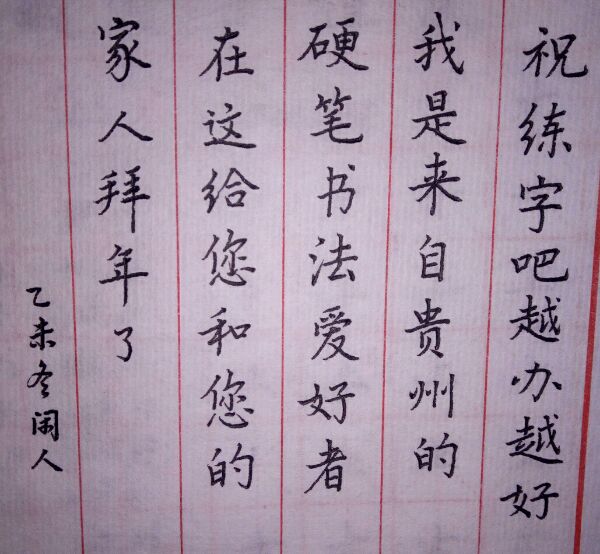 祝练字吧越办越好
我是来自贵州的
硬笔书法爱好者
在这给您和您的
家人拜年了
乙未冬闲人